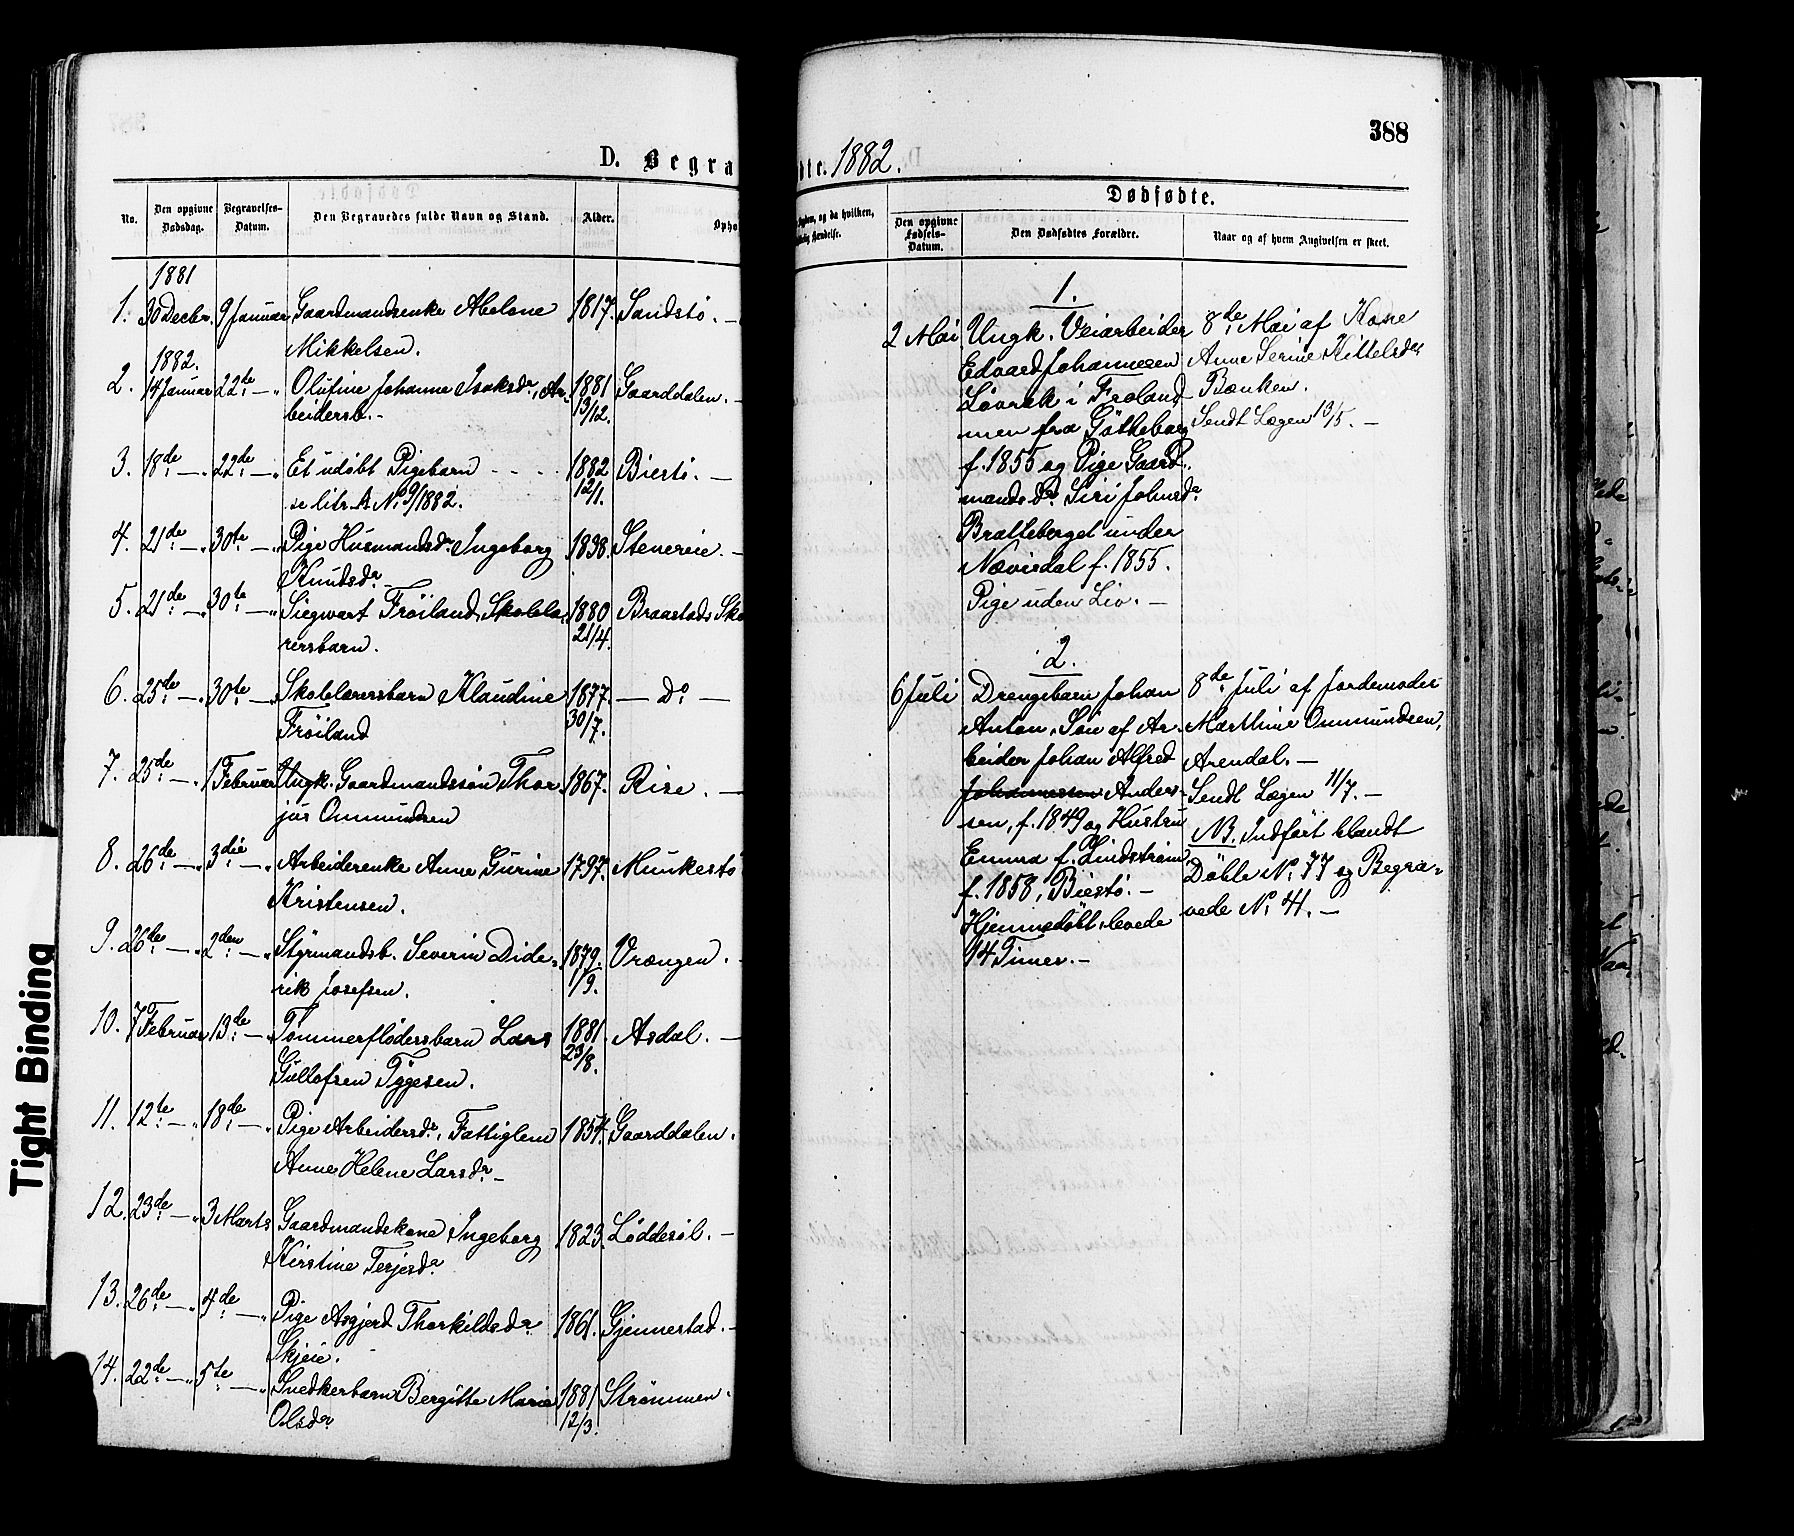 388
D. Begra
dte. 1882.
No.
Den opgivne Dødsdag.
Begravelses-Datum.
Den Begravedes fulde Navn og Stand.
Alder.
Opho
Sygdom, og da hvilken,
Hændelse.
Dødfødte.
Den opgivne Fødsels-Datum.
Den Dødfødtes Forældre.
Naar og af hvem Angivelsen er skeet.
1881
1. 30 Decbr. 9 Januar Gaardmandsenke Abelone 1817. Sandstø. —
Mikkelsen.
1882.
2. 14 Januar 22de — „ Olufine Johanne Isaksdr, Ar- 1881 Gaarddalen. —
beidersb. - 13/12.
3. 18de — „ 22de — „ Et udøbt Pigebarn - - - 1882 Biestø. —
se litr. A No 9/1882. 12/1.
4. 21de — „ 30te — „ Pige Husmandsdr Ingeborg 1838. Stenereie. —
Knudsdr
5. 21de — „ 30te — „ Siegwart Frøiland, Skolelæ- 1880 Braastads Sko
rersbarn. 21/4.
6. 25de — „ 30te — „ Skolelærersbarn Klaudine 1877. — Do —
Frøiland 30/7.
7. 25de — „ 1 Februar Ungk. Gaardmandssøn Thor- 1867. Rise. —
jus Ommundsen
8. 26de — „ 3die — „ Arbeiderenke Anne Gurine 1797. Munkestø
Kristensen.
9. 26de — „ 2den — „ Styrmandsb. Severin Dide- 1879. Vrængen. -
rik Josefsen. 1/9.
10. 7 Februar 13de — „ Tømmerflødersbarn Lars 1881. Asdal. —
Gullofsen Tygesen. 23/8.
11. 12te — „ 18de — „ Pige Arbeidersdr, Fattiglem 1854. Gaarddalen.
Anne Helene Larsdr —
12. 23de — „ 3 Marts Gaardmandskone Ingeborg 1823. Løddesøl. —
Kirstine Terjesdr
13. 26de — „ 4de — „ Pige Asgjerd Thorkildsdr 1861. Gjennestad. -
Skjeie.
14. 22de — „ 5te — „ Snedkerbarn Bergitte Marie 1881 Strømmen.
Olsdr 12/3.
1.
2 Mai Ungk. Veiarbeider
Edvard Johannesen
Løvrak i Froland
men fra Gøtheborg
f. 1855 og Pige Gaard-
mandsdr Siri Johnsdr
Bratteberget under
Nævisdal f. 1855.
Pige uden Liv. —
8de Mai af Kone
Anne Serine Kittelsdr
Bænken.
Sendt Lægen 13/5. —
2.
6 Juli Drengebarn Johan
Anton, Søn af Ar-
beider Johan Alfred
Johannessen Anders-
sen, f. 1849 og Hustru
Emma f. Lindstrøm,
f. 1858, Biestø. —
Hjemmedøbt, levede
14 Timer. —
8de Juli af Jordemoder
Marthine Ommundsen,
Arendal. —
Sendt Lægen 11/7. —
NB. Indført blandt
Døbte No 77 og Begra-
vede No 41. —
Tight Binding